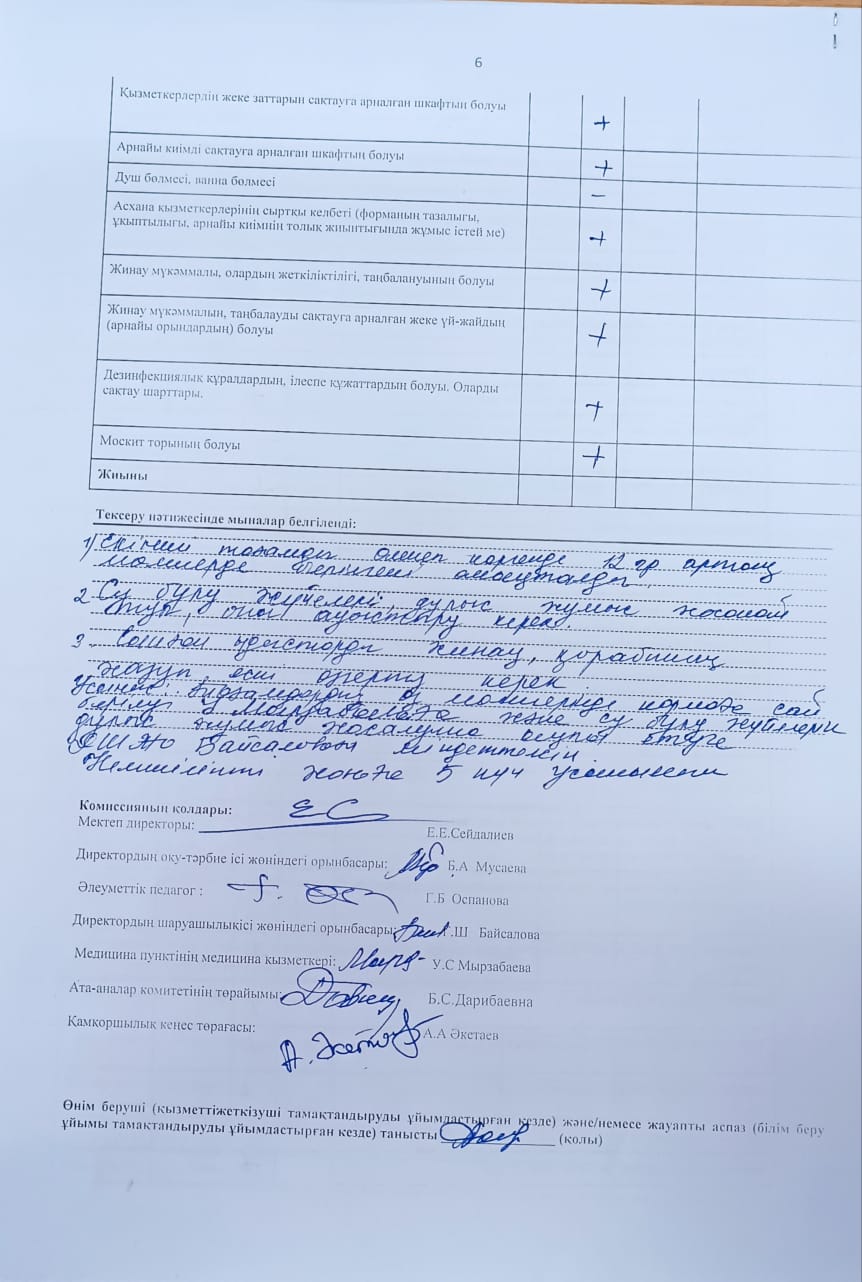 6
Қызметкерлердің жеке заттарын сақтауға арналған шкафтың болуы
+
Арнайы киімді сақтауға арналған шкафтың болуы
+
Душ бөлмесі, ванна бөлмесі
-
Асхана қызметкерлерінің сыртқы келбеті (форманың тазалығы,
ұқыптылығы, арнайы киімнің толық жиынтығында жұмыс істей ме)
+
Жинау мүкәммалы, олардың жеткіліктілігі, таңбалануының болуы
+
Жинау мүкәммалын, таңбалауды сақтауға арналған жеке үй-жайдың
(арнайы орындардың) болуы
+
Дезинфекциялық құралдардың, ілеспе құжаттардың болуы. Оларды
сақтау шарттары.
+
Москит торының болуы
+
Жиыны
Тексеру нәтижесінде мыналар белгіленді:
1) Екінші тағамды өлшеп көргенде 12 гр артық
мөлшерде берілгені анықталды
2 Су бұру жүйелері дұрыс жұмыс жасамай
тұр, оны ауыстыру керек.
3. ыдыстарды жинау, қорабшаға
жазып, есігі керек
мөлшерінде нормаға сай
берілуі У Мырзабаеваға және су бұру жүйелері
дұрыс жұмыс жасалуына ықпал етуге
ДШІЖО Байсаловаға міндеттелсін
Кемшілікті жоюға 5 күн ұсынылған
Комиссияның қолдары:
Мектеп директоры: Е.Е.Сейдалиев
Директордың оқу-тәрбие ісі жөніндегі орынбасары: Б.А Мусаева
Әлеуметтік педагог : Г.Б Оспанова
Директордың шаруашылықісі жөніндегі орынбасары: .Ш Байсалова
Медицина пунктінің медицина қызметкері: У.С Мырзабаева
Ата-аналар комитетінің төрайымы: Б.С.Дарибаевна
Қамқоршылық кеңес төрағасы: А.А Әкетаев
Өнім беруші (қызметтіжеткізуші тамақтандыруды ұйымдастырған кезде) және/немесе жауапты аспаз (білім беру
ұйымы тамақтандыруды ұйымдастырған кезде) танысты (қолы)